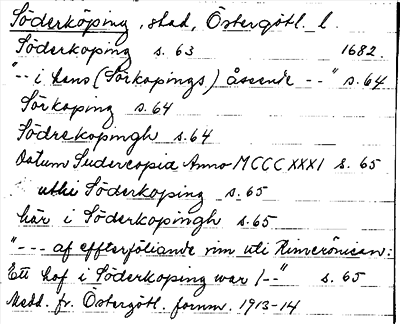 Söderköping, stad, Östergötl. l.
Söderkoping s. 63 1682.
"-- i hans (Sörkopings) åseende --" s. 64
Sörkoping s. 64
Södrekopingh s. 64
Datum Sudercopia Anno MCCCXXXI s. 65
uthi Söderkoping s. 65
här i Söderkopingh s. 65
"--- af effterföliande rim uti Rimcrönican:
Ett hof i Söderkoping war /--" s. 65
Medd. fr. Östergötl. fornm. 1913-14